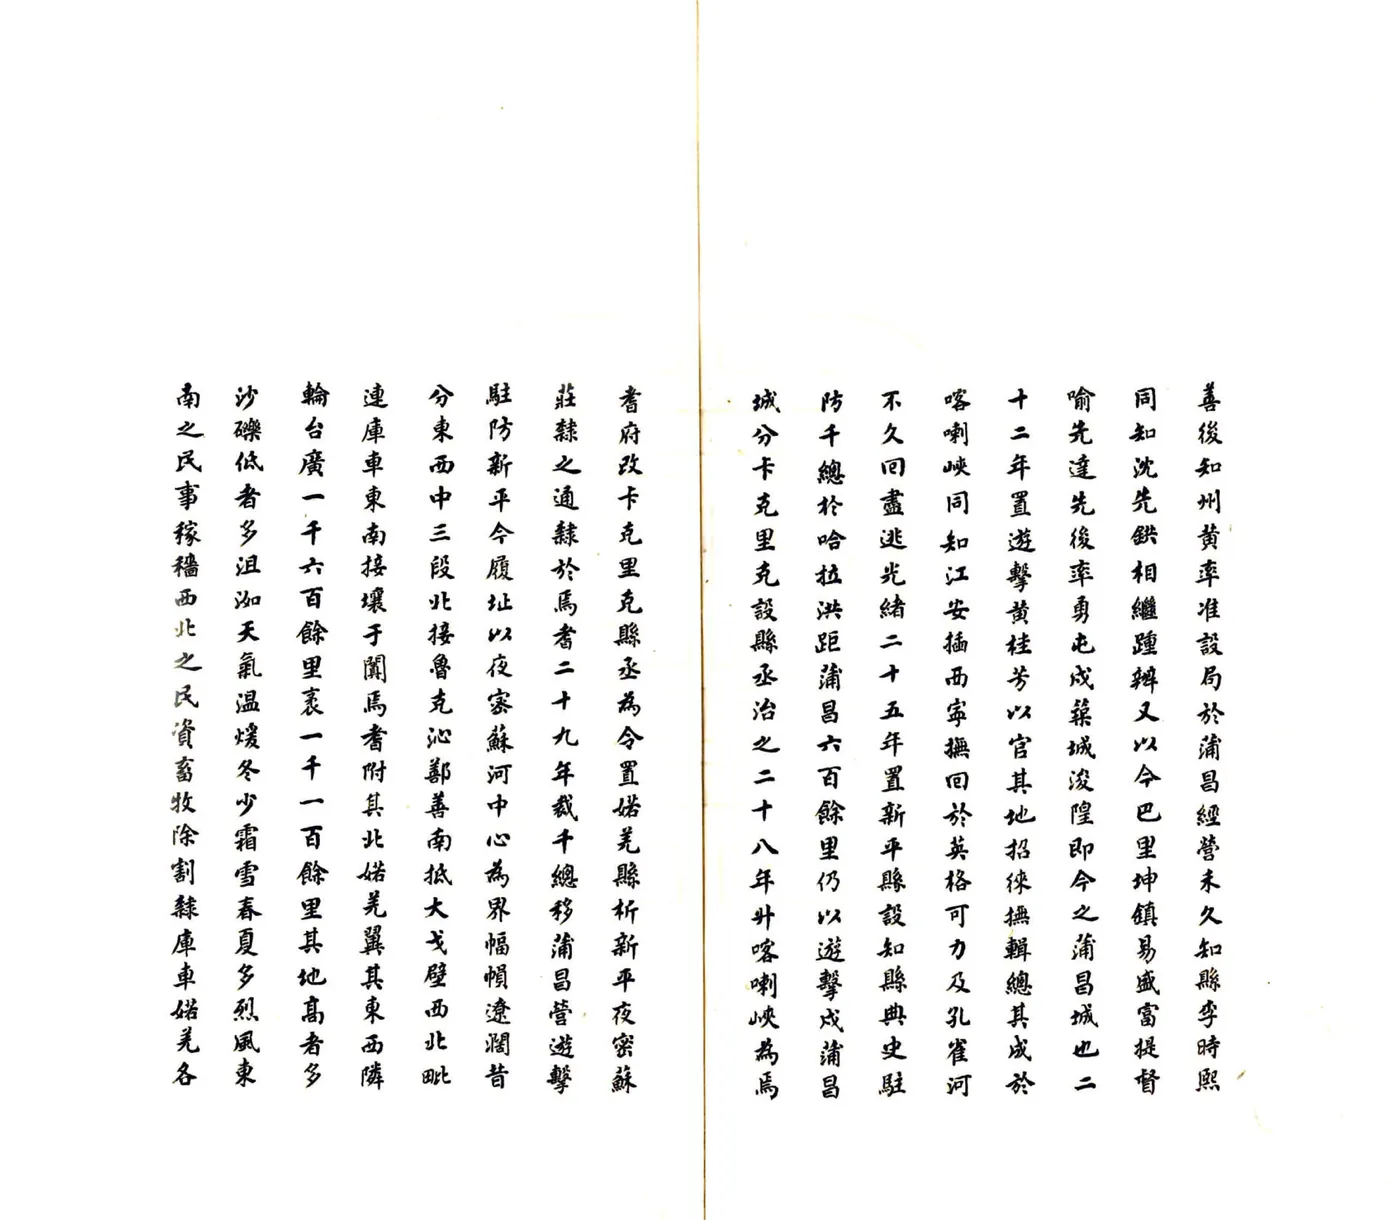 善後知州黄率准設局於蒲昌經營未久知縣李時熙
同知沈先鉷相繼踵辦又以今巴里坤鎮易盛富提督
喻先達先後率勇屯戍築城浚隍即今之蒲昌城也二
十二年置遊擊黄桂芳以官其地招徠撫輯總其成於
喀喇峽同知江安插西寧撫回於英格可力及孔雀河
不久回盡逃光緒二十五年置新平縣設知縣典史駐
防千總於哈拉洪距蒲昌六百餘里仍以遊擊戍蒲昌
城分卡克里克設縣丞治之二十八年升喀喇峽為焉
耆府改卡克里克縣丞為令置婼羌縣析新平夜密蘇
莊隸之通隸於焉耆二十九年裁千總移蒲昌營遊擊
駐防新平今履址以夜密蘇河中心為界幅幀遼濶昔
分東西中三段北接魯克沁鄯善南抵大戈壁西北毗
連庫車東南接壤于闐焉耆附其北婼羌翼其東西隣
輪台廣一千六百餘里袤一千一百餘里其地髙者多
沙礫低者多沮洳天氣温煖冬少霜雪春夏多烈風東
南之民事稼穡西北之民資畜牧除割隸庫車婼羌各